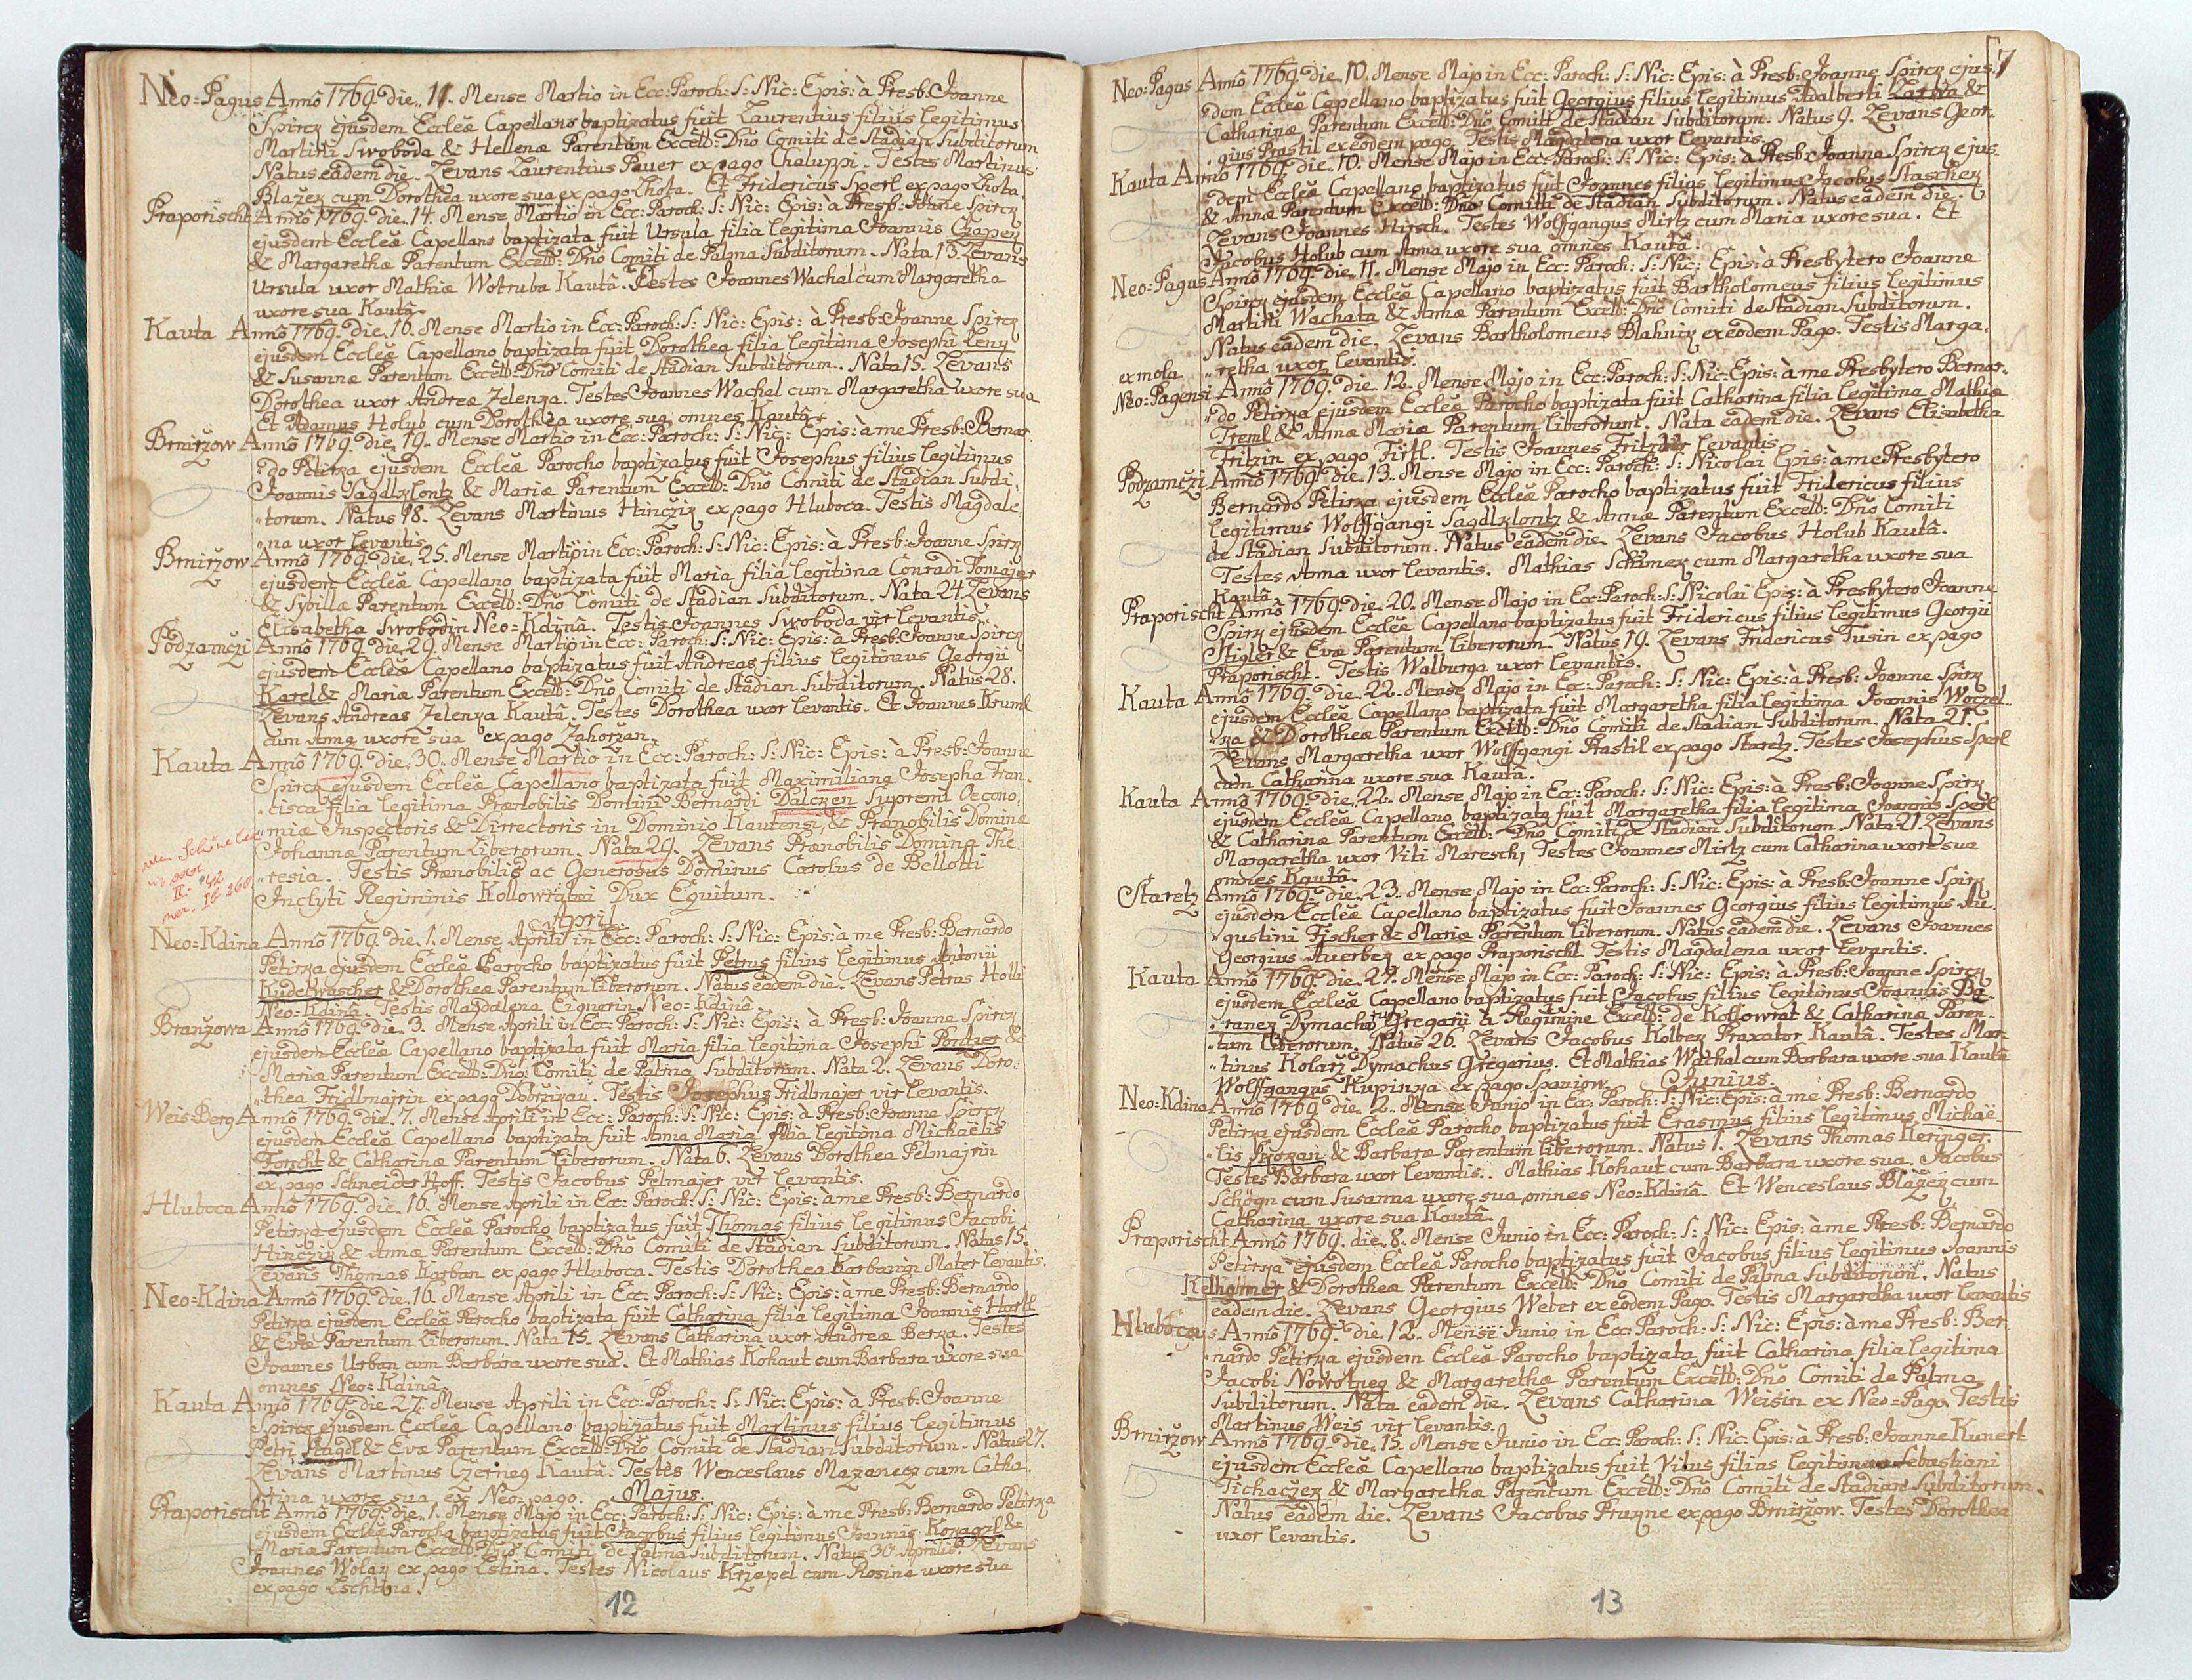 Neo=Pagus Annô 1769. die 11. Mense Martio in Ecc: Paroch: S: Nic: Epis: à Presb: Joanne
Spirck ejusdem Eccleæ Capellano baptizatus fuit Laurentius filius legitimus
Martini Swoboda & Hellenæ Parentum Excell: Dño Comiti de Stadian Subditorum
Natus eadem die. Levans Laurentius Pauer ex pago Chaluppi. Testes Martinus
Blažek cum Dorothea uxore sua ex pago Lhota. Et Fridericus Sperl ex pago Lhota.
Praporischt Annô 1769. die 14. Mense Martio in Ecc: Paroch: S: Nic: Epis: à Presb: Joanne Spirck
ejusdem Eccleæ Capellano baptizata fuit Ursula filia legitima Joannis Czapek
& Margarethæ Parentum Excell: Dño Comiti de Palma Subditorum. Nata 13. Levans
Ursula uxor Mathiæ Wotruba Kautâ. Testes Joannes Wachal cum Margaretha
uxore sua Kautâ.
Kauta Annô 1769. die 16. Mense Martio in Ecc: Paroch: S: Nic: Epis: à Presb: Joanne Spirck
ejusdem Eccleæ Capellano baptizata fuit Dorothea filia legitima Josephi Leny
& Susannæ Parentum Excell: Dño Comiti de Stadian Subditorum. Nata 15. Levans
Dorothea uxor Andreæ Zelenka. Testes Joannes Wachal cum Margaretha uxore sua
Et Adamus Holub cum Dorothea uxore sua omnes Kautâ.
Brniržow Annô 1769. die 19. Mense Martio in Ecc: Paroch: S: Nic: Epis: à me Presb: Bernar
do Petirka ejusdem Eccleæ Parocho baptizatus fuit Josephus filius legitimus
Joannis Sagdlklontz & Mariæ Parentum Excell: Dño Comiti de Stadian Subdi,
„torum. Natus 18. Levans Martinus Hinczik ex pago Hluboca. Testis Magdale
„na uxor levantis.
Brniržow Annô 1769. die 25. Mense Martij in Ecc: Paroch: S: Nic: Epis: à Presb: Joanne Spirck
ejusdem Eccleæ Capellano baptizata fuit Maria filia legitima Conradi Tomajer
& Sybillæ Parentum Excell: Dño Comiti de Stadian Subditorum. Nata 24. Levans
Elisabetha Swobodin Neo=Kdinâ. Testis Joannes Swoboda vir levantis.
Podzamczi Annô 1769. die 29. Mense Martij in Ecc: Paroch: S: Nic: Epis: à Presb: Joanne Spirck
ejusdem Eccleæ Capellano baptizatus fuit Andreas filius legitimus Georgii
Karel & Mariæ Parentum Excell: Dño Comiti de Stadian Subditorum. Natus 28.
Levans Andreas Zelenka Kautâ. Testes Dorothea uxor levantis. Et Joannes Kruml
cum Anna uxore sua ex pago Zahoržan.
Kauta Annô 1769. die 30. Mense Martio in Ecc: Paroch: S: Nic: Epis: à Presb: Joanne
Spirck ejusdem Eccleæ Capellano baptizata fuit Maximiliana Josepha Fran.
„cisca filia legitima Prænobilis Domini Bernardi Dalczen Supremi Œcono,
„miæ Inspectoris & Dirrectoris in Dominio Kautensi, & Prænobilis Dominæ
Johannæ Parentum Liberorum. Nata 29. Levans Prænobilis Domina The
„resia. Testis Prænobilis ac Generosus Dominus Carolus de Bellotti
Inclyti Regiminis Kollowratæi Dux Equitum.
April.
Neo=Kdina Annô 1769. die 1. Mense Aprili in Ecc: Paroch: S: Nic: Epis: à me Presb: Bernardo
Petirka ejusdem Eccleæ Parocho baptizatus fuit Petrus filius legitimus Antonii
Kudebwascher & Dorotheæ Parentum liberorum. Natus eadem die. Levans Petrus Holli
Neo=Kdinâ. Testis Magdalena Eignerin Neo=Kdinâ.
Branžowa Annô 1769. die 3. Mense Aprili in Ecc: Paroch: S: Nic: Epis: à Presb: Joanne Spirck
ejusdem Eccleæ Capellano baptizata fuit Maria filia legitima Josephi Pontzer &
Mariæ Parentum Excell: Dño Comiti de Palma Subditorum. Nata 2. Levans Doro:
„thea Fridlmajrin ex pago Dobržikau. Testis Josephus Fridlmajer vir levantis.
Weis=Berg Annô 1769. die 7. Mense Aprili in Ecc: Paroch: S: Nic: Epis: à Presb: Joanne Spirck
ejusdem Eccleæ Capellano baptizata fuit Anna Maria filia legitima Michaëlis
Forscht & Catharinæ Parentum liberorum. Nata 6. Levans Dorothea Pelmajrin
ex pago Schneider Hoff. Testis Jacobus Pelmajer vir levantis.
Hluboca Annô 1769. die 16. Mense Aprili in Ecc: Paroch: S: Nic: Epis: à me Presb: Bernardo
Petirka ejusdem Eccleæ Parocho baptizatus fuit Thomas filius legitimus Jacobi
Hinczik & Annæ Parentum Excell: Dño Comiti de Stadian Subditorum. Natus 15.
Levans Thomas Karban ex pago Hluboca. Testis Dorothea Karbanin Mater levantis.
Neo=Kdina Annô 1769. die 16. Mense Aprili in Ecc: Paroch: S: Nic: Epis: à me Presb: Bernardo
Petirka ejusdem Eccleæ Parocho baptizata fuit Catharina filia legitima Joannis Hartl
& Evæ Parentum Liberorum. Nata 15. Levans Catharina uxor Andreæ Berka. Testes
Joannes Urban cum Barbara uxore sua. Et Mathias Kohaut cum Barbara uxore sua
omnes Neo=Kdinâ
Kauta Annô 1769. die 27. Mense Aprili in Ecc: Paroch: S: Nic: Epis: à Presb: Joanne
Spirck ejusdem Eccleæ Capellano baptizatus fuit Martinus filius legitimus
Petri Stadl & Evæ Parentum Excell: Dño Comiti de Stadian Subditorum. Natus 27.
Levans Martinus Czerneg Kautâ. Testes Wenceslaus Mazanecz cum Catha.
„rina uxore sua ex Neo=pago. Majus.
Praporischt Annô 1769. die 1. Mense Majo in Ecc: Paroch: S: Nic: Epis: à me Presb: Bernardo Petirka
ejusdem Eccleæ Parocho baptizatus fuit Jacobus filius legitimus Joannis Kozagzl &
Mariæ Parentum Excell: Dño Comiti de Palma Subditorum. Natus 30. Aprilis. Levans
Joannes Wolak ex pago Lstina. Testes Nicolaus Kržapel cum Rosina uxore sua
ex pago
12
7
Neo=Pagus Annô 1769. die 10. Mense Majo in Ecc: Paroch: S: Nic: Epis: à Presb: Joanne Spirck ejus.
dem Eccleæ Capellano baptizatus fuit Georgius filius legitimus Adalberti &
Catharinæ Parentum Excell: Dño Comiti de Stadian Subditorum. Natus 9. Levans Geor.
„gius Prastil ex eodem pago. Testis Magdalena uxor levantis.
Kauta Annô 1769. die 10. Mense Majo in Ecc: Paroch: S: Nic: Epis: à Presb: Joanne Spirck ejus.
dem Eccleæ Capellano baptizatus fuit Joannes filius legitimus Jacobus Staschek
& Annæ Parentum Excell: Dño Comiti de Stadian Subditorum. Natus eadem die.
Levans Joannes Hirsch. Testes Wolffgangus Mirtz cum Maria uxore sua. Et
Jacobus Holub cum Anna uxore sua omnes Kautâ.
Neo=Pagus Annô 1769. die 11. Mense Majo in Ecc: Paroch: S: Nic: Epis: à Presbytero Joanne
Spirck ejusdem Eccleæ Capellano baptizatus fuit Bartholomeus filius legitimus
Martini Wachata & Annæ Parentum Excell: Dño Comiti de Stadian Subditorum.
Natus eadem die. Levans Bartholomeus Blahnik ex eodem Pago. Testis Marga.
„retha uxor levantis.
ex mola
Neo=Pagensi Annô 1769. die 12. Mense Majo in Ecc: Paroch: S: Nic: Epis: à me Presbytero Bernar.
„do Petirka ejusdem Eccleæ Parocho baptizata fuit Catharina filia legitima Mathiæ
Treml & Annæ Mariæ Parentum liberorum. Nata eadem die. Levans Elisabetha
Fritzin ex pago Firtl. Testis Joannes Fritz vir levantis.
Podzamczi Annô 1769. die 13. Mense Majo in Ecc: Paroch: S: Nicolai Epis: à me Presbytero
Bernardo Petirka ejusdem Eccleæ Parocho baptizatus fuit Fridericus filius
legitimus Wolffgangi Sagdlklontz & Annæ Parentum Excell: Dño Comiti
de Stadian Subditorum. Natus eadem die. Levans Jacobus Holub Kautâ.
Testes Anna uxor levantis. Mathias Schimek cum Margaretha uxore sua
Kautâ.
Praporischt Annô 1769. die 20. Mense Majo in Ecc: Paroch: S: Nicolai Epis: à Presbytero Joanne
Spirck ejusdem Eccleæ Capellano baptizatus fuit Fridericus filius legitimus Georgii
Stigler & Evæ Parentum liberorum. Natus 19. Levans Fridericus Tusin ex pago
Praporischt. Testis Walburga uxor levantis.
Kauta Annô 1769. die 22. Mense Majo in Ecc: Paroch: S: Nic: Epis: à Presb: Joanne Spirck
ejusdem Eccleæ Capellano baptizata fuit Margaretha filia legitima Joannis Woczel.
„ka & Dorotheæ Parentum Excell: Dño Comiti de Stadian Subditorum. Nata 21.
Levans Margaretha uxor Wolffgangi Prastil ex pago Staretz. Testes Josephus Sperl
cum Catharina uxore sua Kautâ.
Kauta Annô 1769. die 22. Mense Majo in Ecc: Paroch: S: Nic: Epis: à Presb: Joanne Spirck
ejusdem Eccleæ Capellano baptizata fuit Margaretha filia legitima Joannis Sperl
& Catharinæ Parentum Excell: Dño Comiti de Stadian Subditorum. Nata 21. Levans
Margaretha uxor Viti Maresch, Testes Joannes Mirtz cum Catharina uxore sua
omnes Kautâ.
Staretz Annô 1769. die 23. Mense Majo in Ecc: Paroch: S: Nic: Epis: à Presb: Joanne Spirck
ejusdem Eccleæ Capellano baptizatus fuit Joannes Georgius filius legitimus Au.
„gustini Fischer & Mariæ Parentum liberorum. Natus eadem die. Levans Joannes
Georgius Auerbek ex pago Praporischt. Testis Magdalena uxor levantis.
Kauta Annô 1769. die 27. Mense Majo in Ecc: Paroch: S: Nic: Epis: à Presb: Joanne Spirck
ejusdem Eccleæ Capellano baptizatus fuit Jacobus filius legitimus Joannis Be.
„ranek Dymachi Gregarii à Regimine Excell: de Kollowrat & Catharinæ Paren..
„tum liberorum. Natus 26. Levans Jacobus Kolbek Praxator Kautâ. Testes Mar.
„tinus Kolarž Dymachus Gregarius. Et Mathias Wachal cum Barbara uxore sua Kautâ
Wolffgangus Kupinka ex pago Spaniow. Junius.
Neo=Kdina Annô 1769. die 2. Mense Junio in Ecc: Paroch: S: Nic: Epis: à me Presb: Bernardo
Petirka ejusdem Eccleæ Parocho baptizatus fuit Erasmus filius legitimus Michaë-
„lis & Barbaræ Parentum liberorum. Natus 1. Levans Thomas Keringer.
Testes Barbara uxor levantis. Mathias Kohaut cum Barbara uxore sua. Jacobus
Schögn cum Susanna uxore sua omnes Neo=Kdinâ. Et Wenceslaus Blažek cum
Catharina uxore sua Kautâ.
Praporischt Annô 1769. die 8. Mense Junio in Ecc: Paroch: S: Nic: Epis: à me Presb: Bernardo
Petirka ejusdem Eccleæ Parocho baptizatus fuit Jacobus filius legitimus Joannis
Kelhamer & Dorotheæ Parentum Excell: Dño Comiti de Palma Subditorum. Natus
eadem die. Levans Georgius Weber ex eodem Pago. Testis Margaretha uxor levantis
Hluboca Annô 1769. die 12. Mense Junio in Ecc: Paroch: S: Nic: Epis: à me Presb: Ber.
„nardo Petirka ejusdem Eccleæ Parocho baptizata fuit Catharina filia legitima
Jacobi Nowotneg & Margarethæ Parentum Excell: Dño Comiti de Palma
Subditorum. Nata eadem die. Levans Catharina Weisin ex Neo=Pago. Testis
Martinus Weis vir levantis.
Brniržow Annô 1769. die 15. Mense Junio in Ecc: Paroch: S: Nic: Epis: à Presb: Joanne Kunert
ejusdem Eccleæ Capellano baptizatus fuit Vitus filius legitimus Sebastiani
Tichaczek & Margarethæ Parentum Excell: Dño Comiti de Stadian Subditorum.
Natus eadem die. Levans Jacobus Pruxne ex pago Brniržow. Testes Dorothea
uxor levantis.
13